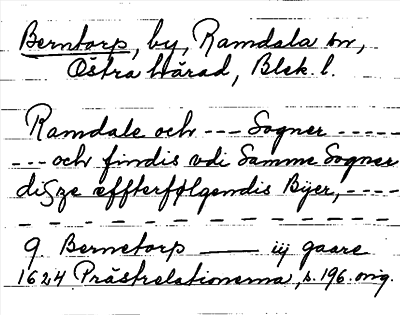 Berntorp, by, Ramdala sn,
Östra härad, Blek. l.
Ramdale och --- Sogner -----
--- och findis vdi Samme Sogner
disze effterfølgendis Byer, ----
9. Bernetorp —— iij gaare
1624 Prästrelationerna, s. 196. orig.